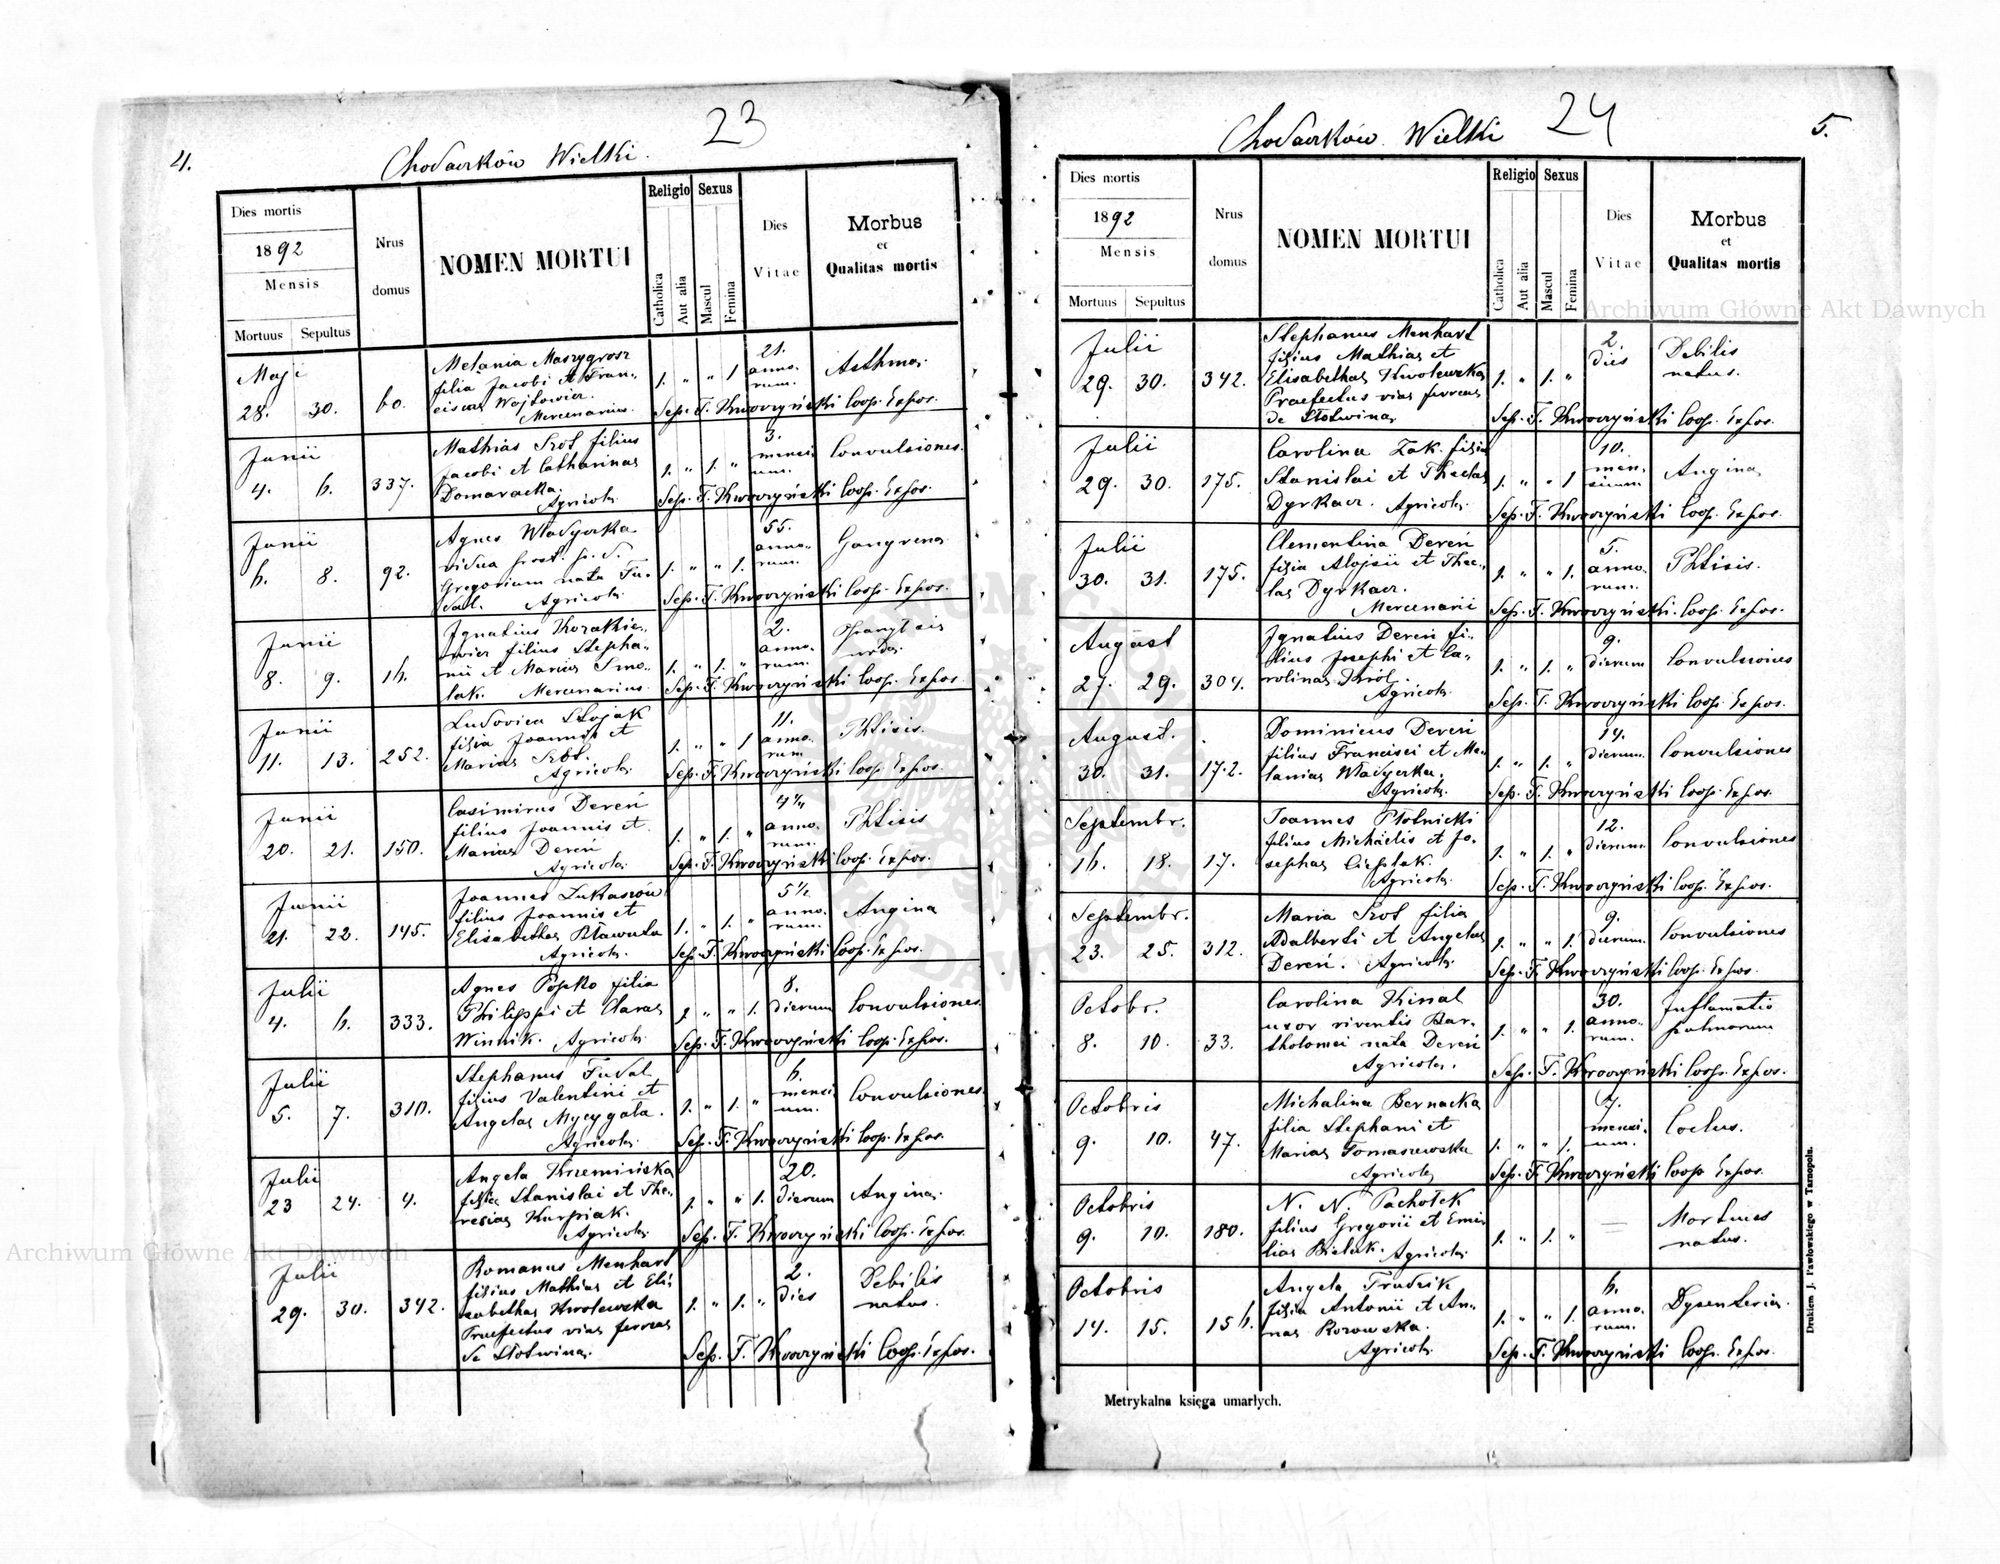 4.
23
Chodaczków Wielki.
Dies mortis
1892
Mensis
Mortuus Sepultus
Nrus domus
NOMEN MORTUI
Religio
Catholica
Aut alia
Sexus
Mascul
Femina
Dies Vitae
Morbus
et
Qualitas mortis
Maji
28. 30. 60.
Melania
filia Jacobi et Fran-
ciscae Wojtowicz.
Mercenarius.
1. " " 1
21.
anno-
rum.
Asthma.
Sep. F. Kwoczyński Coop. Expos.
Junii
4. 6. 337.
Mathias Szot filius
Jacobi et Catharinae
Domaracka.
Agricola
1. " 1. "
3.
mensi
um.
Convulsiones.
Sep. F. Kwoczyński Coop. Expos.
Junii
6. 8. 92.
Agnes Władyczka
vidua post. p. d.
Gregorium nata Fu-
dal. Agricola
1. " " 1.
55.
anno-
rum.
Gangrena
Sep. F. Kwoczyński Coop. Expos.
Junii
8. 9. 16.
Ignatius Kozakie-
wicz filius Stepha-
nii et Mariae Smo-
lak. Mercenarius.
1. " 1. "
2.
anno-
rum.
Sep. F. Kwoczyński Coop. Expos.
Junii
11. 13. 252.
Ludovica Stojak
filia Joannis et
Mariae Szot.
Agricola
1. " " 1
11.
anno-
rum
Phtisis.
Sep. F. Kwoczyński Coop. Expos.
Junii
20. 21. 150.
Casimirus Dereń
filius Joannis et
Mariae Dereń
Agricola
1. " 1. "
4 1/4
anno-
rum.
Phtisis
Sep. F. Kwoczyński Coop. Expos.
Junii
21. 22. 145.
Joannes Lukaszów
filius Joannis et
Elisabethae Bławuta
Agricola
1. " 1. "
5 1/2
anno-
rum.
Angina
Sep. F. Kwoczyński Coop. Expos.
Julii
4. 6. 333.
Agnes Popko filia
Philippi et Clarae
Winnik. Agricola
1. " " 1.
8.
dierum
Convulsiones.
Sep. F. Kwoczyński Coop. Expos.
Julii
5. 7. 310.
Stephanus Fudal
filius Valentini et
Angelae Mycygała.
Agricola
1. " 1. "
6.
mensi
um.
Convulsiones.
Sep. F. Kwoczyński Coop. Expos.
Julii
23 24. 4.
Angela Krzemińska
filia Stanislai et The-
resiae Kurpiak.
Agricola
1. " " 1.
20.
dierum
Angina.
Sep. F. Kwoczyński Coop. Expos.
Julii
29. 30. 342.
Romanus Menhard
filius Mathiae et Eli-
sabethae Kwolewska
Praefectus viae ferreae
de Słotwina.
1. " 1. "
2.
dies
Debilis
natus.
Sep. F. Kwoczyński Coop. Expos.
24
5.
Chodaczków Wielki
Dies mortis
1892
Mensis
Mortuus Sepultus
Nrus domus
NOMEN MORTUI
Religio
Catholica
Aut alia
Sexus
Mascul
Femina
Dies Vitae
Morbus
et
Qualitas mortis
Julii
29. 30. 342.
Stephanus Menhard
filius Mathiae et
Elisabethae Kwolewska
Praefectus viae ferreae
de Słotwina
1. " 1. "
2.
dies
Debilis
natus.
Sep. F. Kwoczyński Coop. Expos.
Julii
29. 30. 175.
Carolina Żak filia
Stanislai et Theclae
Dyrkacz. Agricola
1. " " 1
10.
men-
sium.
Angina
Sep. F. Kwoczyński Coop. Expos.
Julii
30. 31. 175.
Clementina Dereń
filia Alojsii et Thec-
lae Dyrkacz.
Mercenarii
1. " " 1.
5.
anno-
rum.
Phtisis.
Sep. F. Kwoczyński Coop. Expos.
August
27. 29. 304.
Ignatius Dereń fi-
lius Josephi et Ca-
rolinae Król.
Agricola
1. " 1. "
9.
dierum
Convulsiones
Sep. F. Kwoczyński Coop. Expos.
August.
30. 31. 172.
Dominicus Dereń
filius Francisci et Me-
laniae Władyczka.
Agricola.
1. " 1. "
14.
dierum.
Convulsiones
Sep. F. Kwoczyński Coop. Expos.
Septembr.
16. 18. 17.
Joannes Płotnicki
filius Michäelis et Jo-
sephae Cieplak.
Agricola
1. " 1. "
12.
dierum
Convulsiones
Sep. F. Kwoczyński Coop. Expos.
Septembr.
23. 25. 312.
Maria Szot filia
Adalberti et Angelae
Dereń. Agricola
1. " " 1.
9.
dierum.
Convulsiones
Sep. F. Kwoczyński Coop. Expos.
Octobr.
8. 10. 33.
Carolina Kinal
uxor viventis Bar-
tholomei nata Dereń
Agricola.
1. " " 1.
30.
anno-
rum.
Inflamatio
pulmorum
Sep. F. Kwoczyński Coop. Expos.
Octobris
9. 10. 47.
Michalina Bernacka
filia Stephani et
Mariae Tomaszewska
Agricola
1. " " 1.
7.
mensi-
um.
Sep. F. Kwoczyński Coop Expos.
Octobris
9. 10. 180.
N. N. Pachołek
filius Gregorii et Emi-
liae Bielak. Agricola
1. " 1. "
Mortuus
natus.
Octobris
14. 15. 156.
Angela Frudzik
filia Antonii et An-
nae Rozowska.
Agricola
1. " " 1.
6.
anno-
rum.
Dysenteria.
Sep. F. Kwoczyński Coop. Expos.
Metrykalna księga umarłych.
Drukiem J. Pawłowskiego w Tarnopolu.
Archiwum Główne Akt Dawnych
Archiwum Główne Akt Dawnych